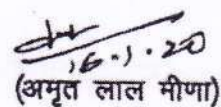 16.1.20
(अमृत लाल मीणा)